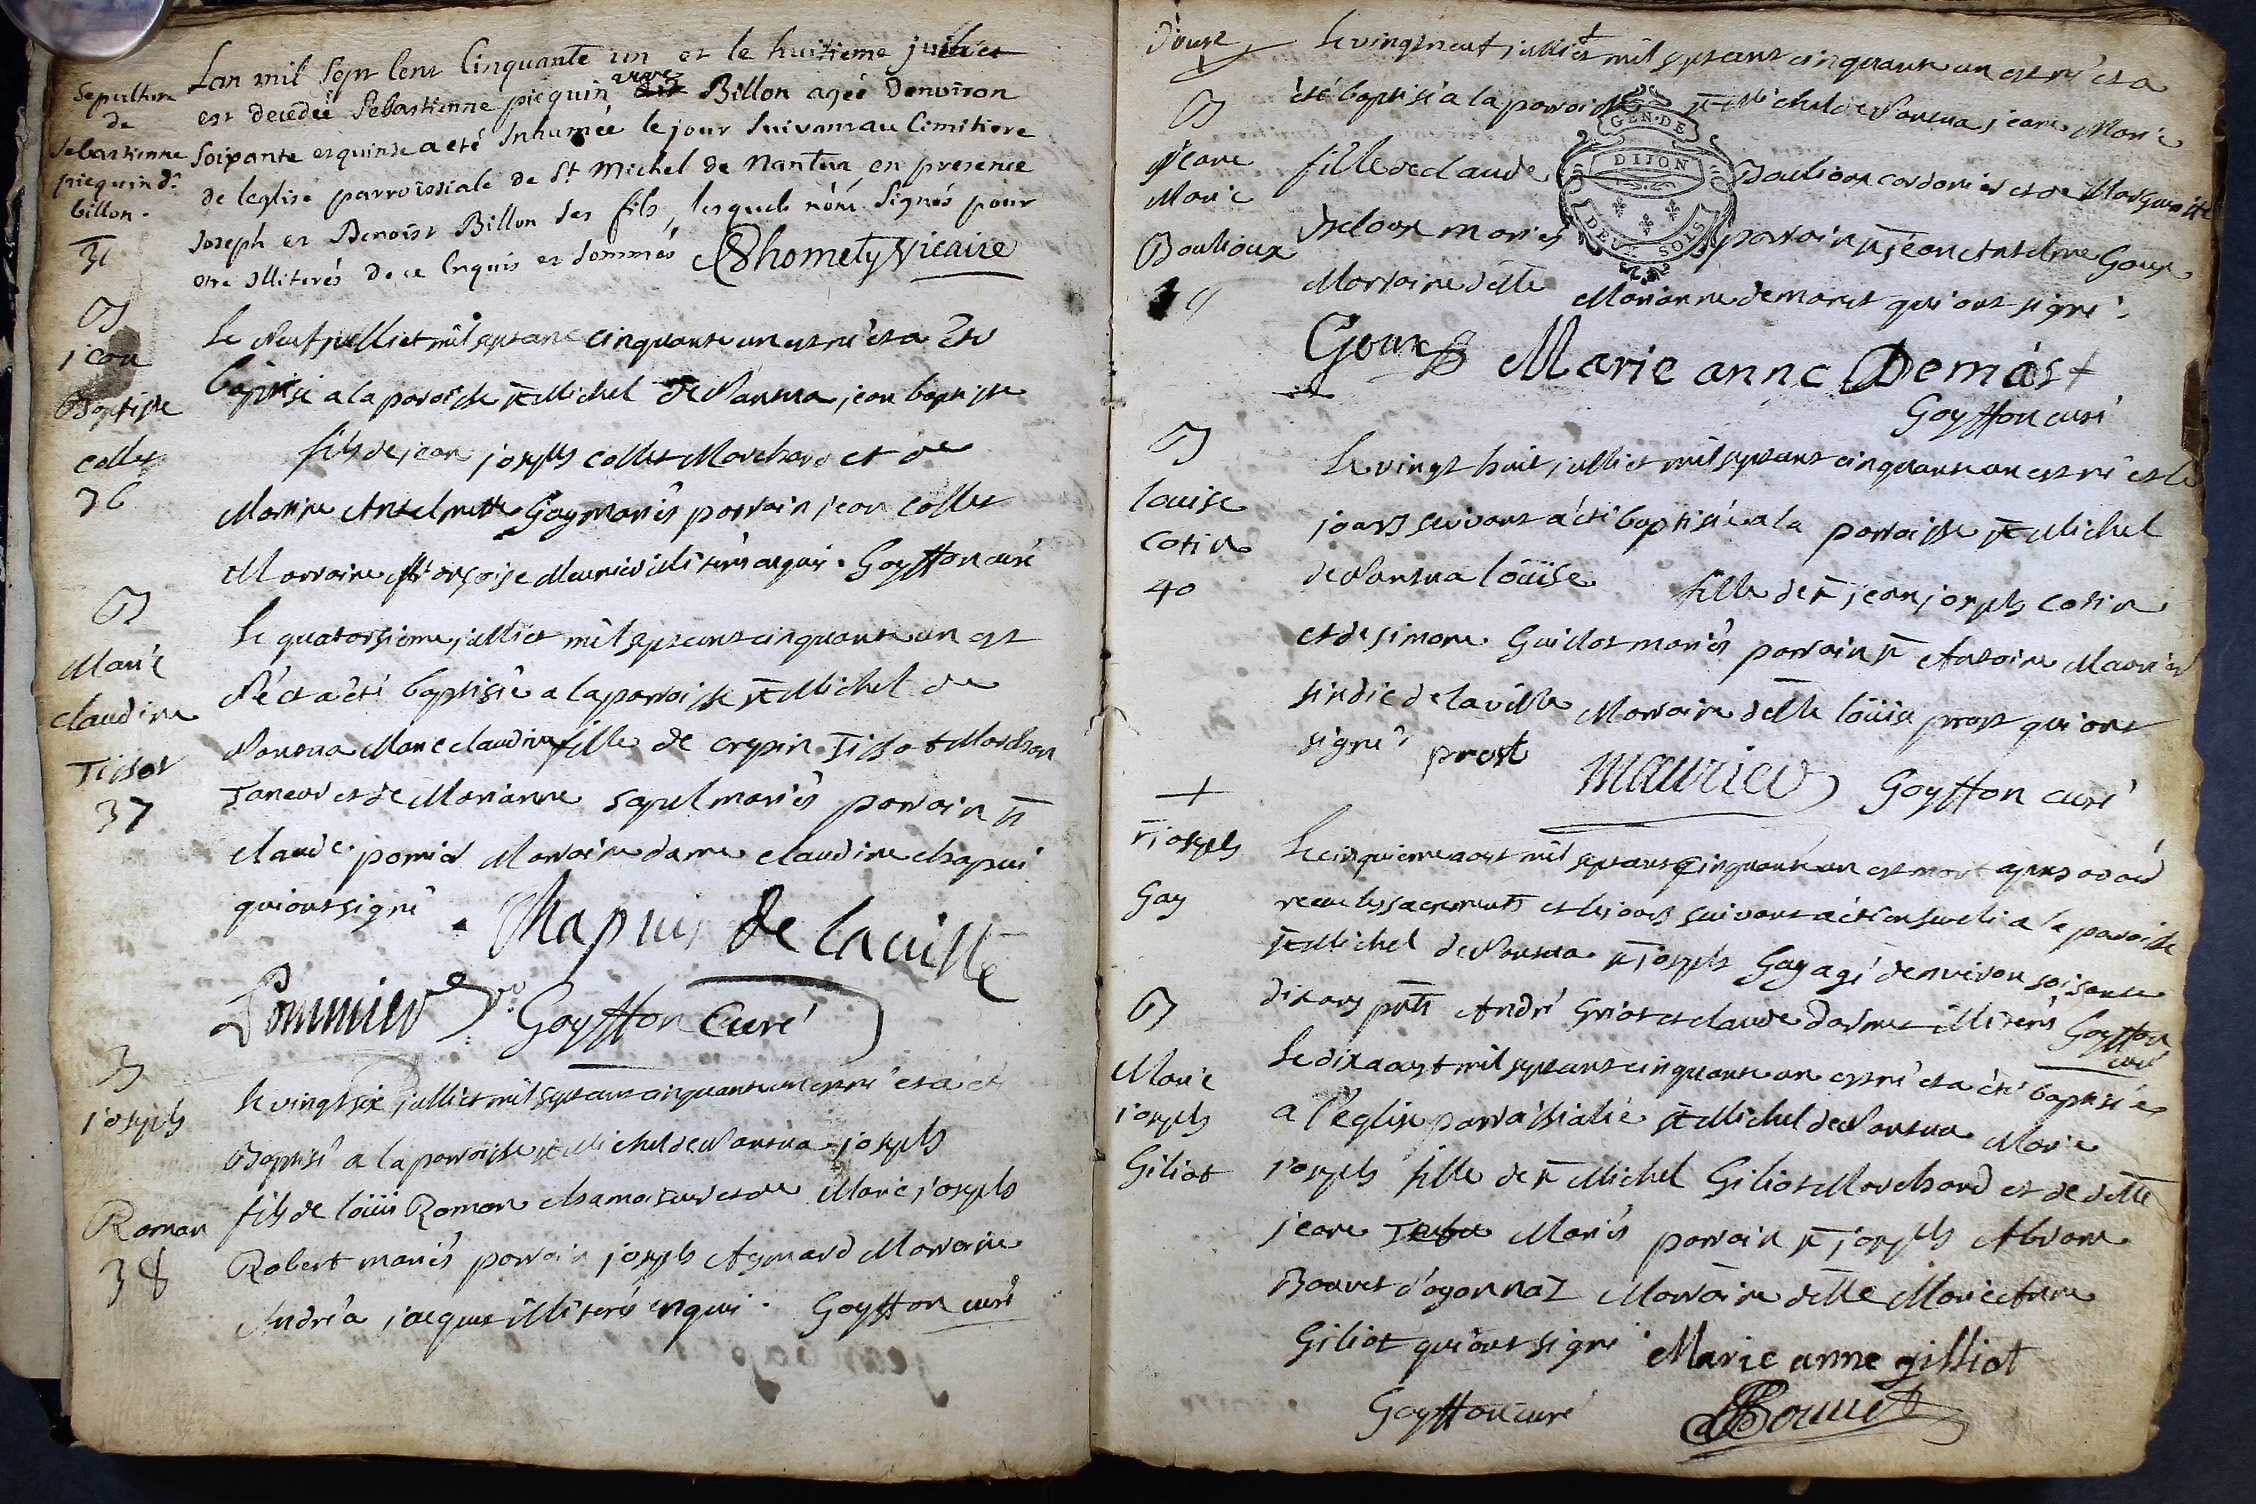 Sepulture
de
Sebastienne
picquin d.e
billon.
31
Lan mil sept Cent Cinquante un et le huitieme juillet
est decedée Sebastienne picquin veuve Billon agée denviron
Soixante et quinze a eté Inhumée le jour Suivant au Cimitiere
de leglise parroissiale de St Michel de Nantua en presence
Joseph et Benoist Billon ses fils, lesquels nônt Signés pour
etre illiterés de ce Enquis et sommés Rhomety Vicaire
B
jean
Baptiste
collet
36
Le Neuf julliet mil septcent cinquante un est né et a Eté
Baptisé a la paroisse st Michel de Nantua jean baptiste
fils de jean joseph collet Marchand et de
Martine Antelmette Gay mariés parrain jean Collet
Marraine françoise Meunier illiterés enquis. Goyffon curé
B
Marie
claudine
Tissot
37
Le quatorsieme julliet mil septcent cinquante un est
Né et a été baptisé a la parroisse st Michel de
Nantua Marie claudine fille de crepin Tissot Marchan
Taneur et de Marianne sapel mariés parrain sr
claude pomier Marraine dame claudine chapui
qui ont signé. Chapuis de laville
Pommier Goyffon Curé
B
joseph
Roman
38
le vingt six julliet mil septcent cinquante un est né et a été
Baptisé a la parroisse st Michel de Nantua joseph
fils de loüis Roman chamoiseur et de Marie joseph
Robert mariés parrain joseph Aymard Marraine
Andréa jacquet illiterés enquis. Goyffon curé
B
jeane
Marie
Boulioux
39
Le vingt neuf julliet mil septcent cinquante un est né et a
été baptisé a la parroisse st Michel de Nantua jeane Marie
fille de claude Boulioux cordonier et de Marguerite
mariés parrain sr jean Antelme Goux
Marraine delle Marianne demarest qui ont signé.
GEN. DE
DIJON
DEUX SOLS
Goux Marie anne Demast
Goyffon curé
B
louise
Cotin
40
Le vingt huit julliet mil septcent cinquante un est né et le
jours suivant a été baptisée a la parroisse st Michel
de Nantua loüise fille de sr jean joseph Cotin
et de simone Guillot mariés parrain sr Antoine Maurier
sindic de la ville Marraine delle loüise prost qui ont
signé prost maurier Goyffon curé
+
sr joseph
Gay
Le cinquieme aoust mil septcent cinquante un est mort apres avoir
receu les sacrements et le jours suivant a été enseveli a la paroisse
st Michel de Nantua sr joseph Gay agé denviron soisante
dix ans pnts André Griot et claude illiterés Goyffon
curé
B
Marie
joseph
Giliot
Le dix aoust mil septcent cinquante un est né et a été baptisée
a l'eglise parroissialle st Michel de Nantua Marie
joseph fille de sr Michel Giliot Marchand et de delle
jeane Mariés parrain sr joseph Abram
Bouvet d'oyonnaz Marraine delle Marie Anne
Giliot qui ont signé Marie anne gilliot
Goyffon curé Bouuet